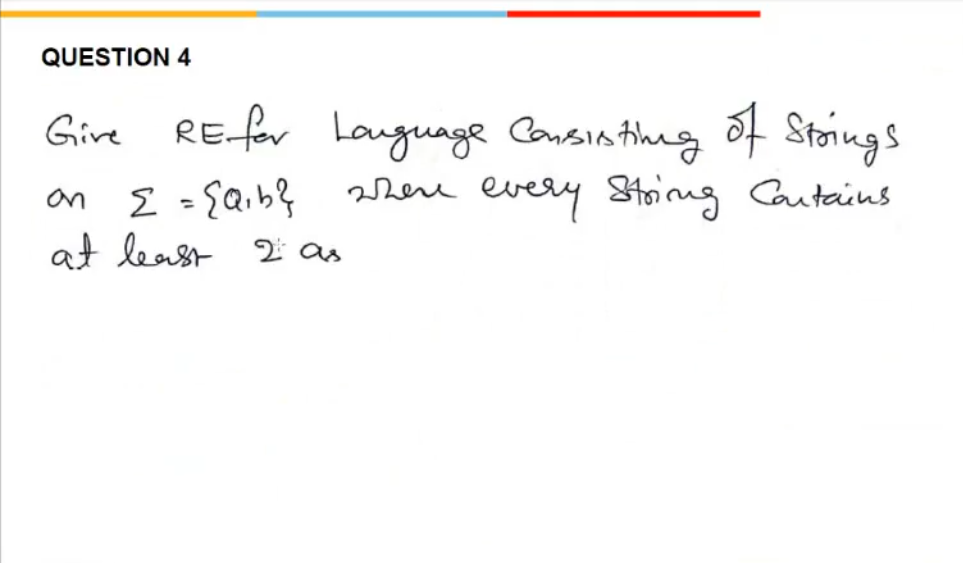 QUESTION 4
Give RE for Language Consisting of Strings
on Σ = {a,b} where every string Contains
at least 2 as